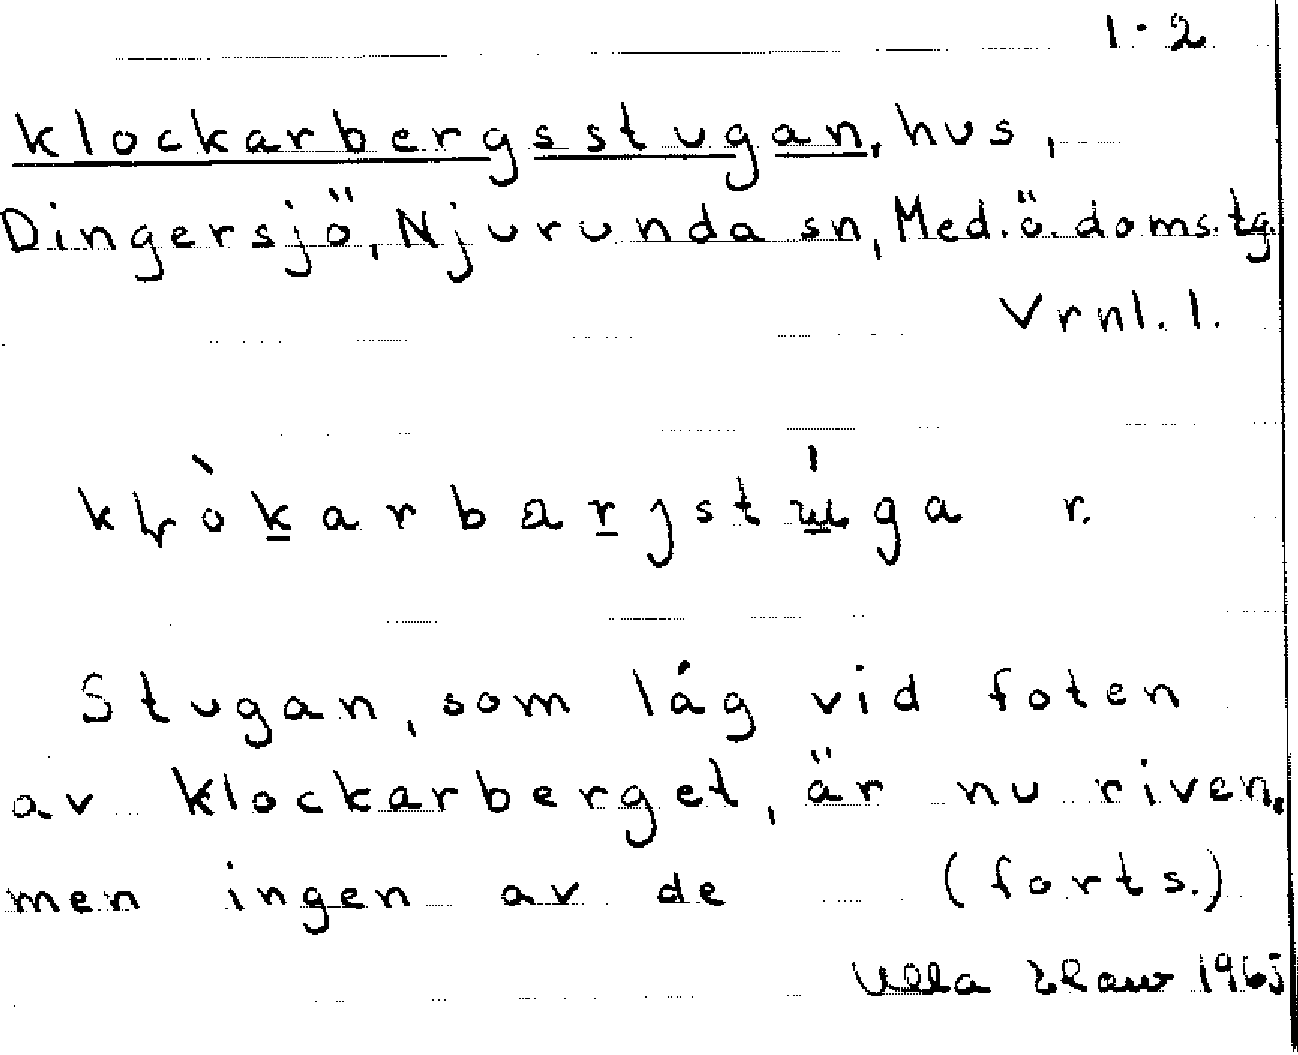 1·2
Klockarbergsstugan, hus,
Dingersjö, Njurunda sn, Med.ö.doms.tg.
Vrnl. l.
r.
Stugan, som låg vid foten
av Klockarberget, är nu riven,
men ingen av de (forts.)
Ulla 1965